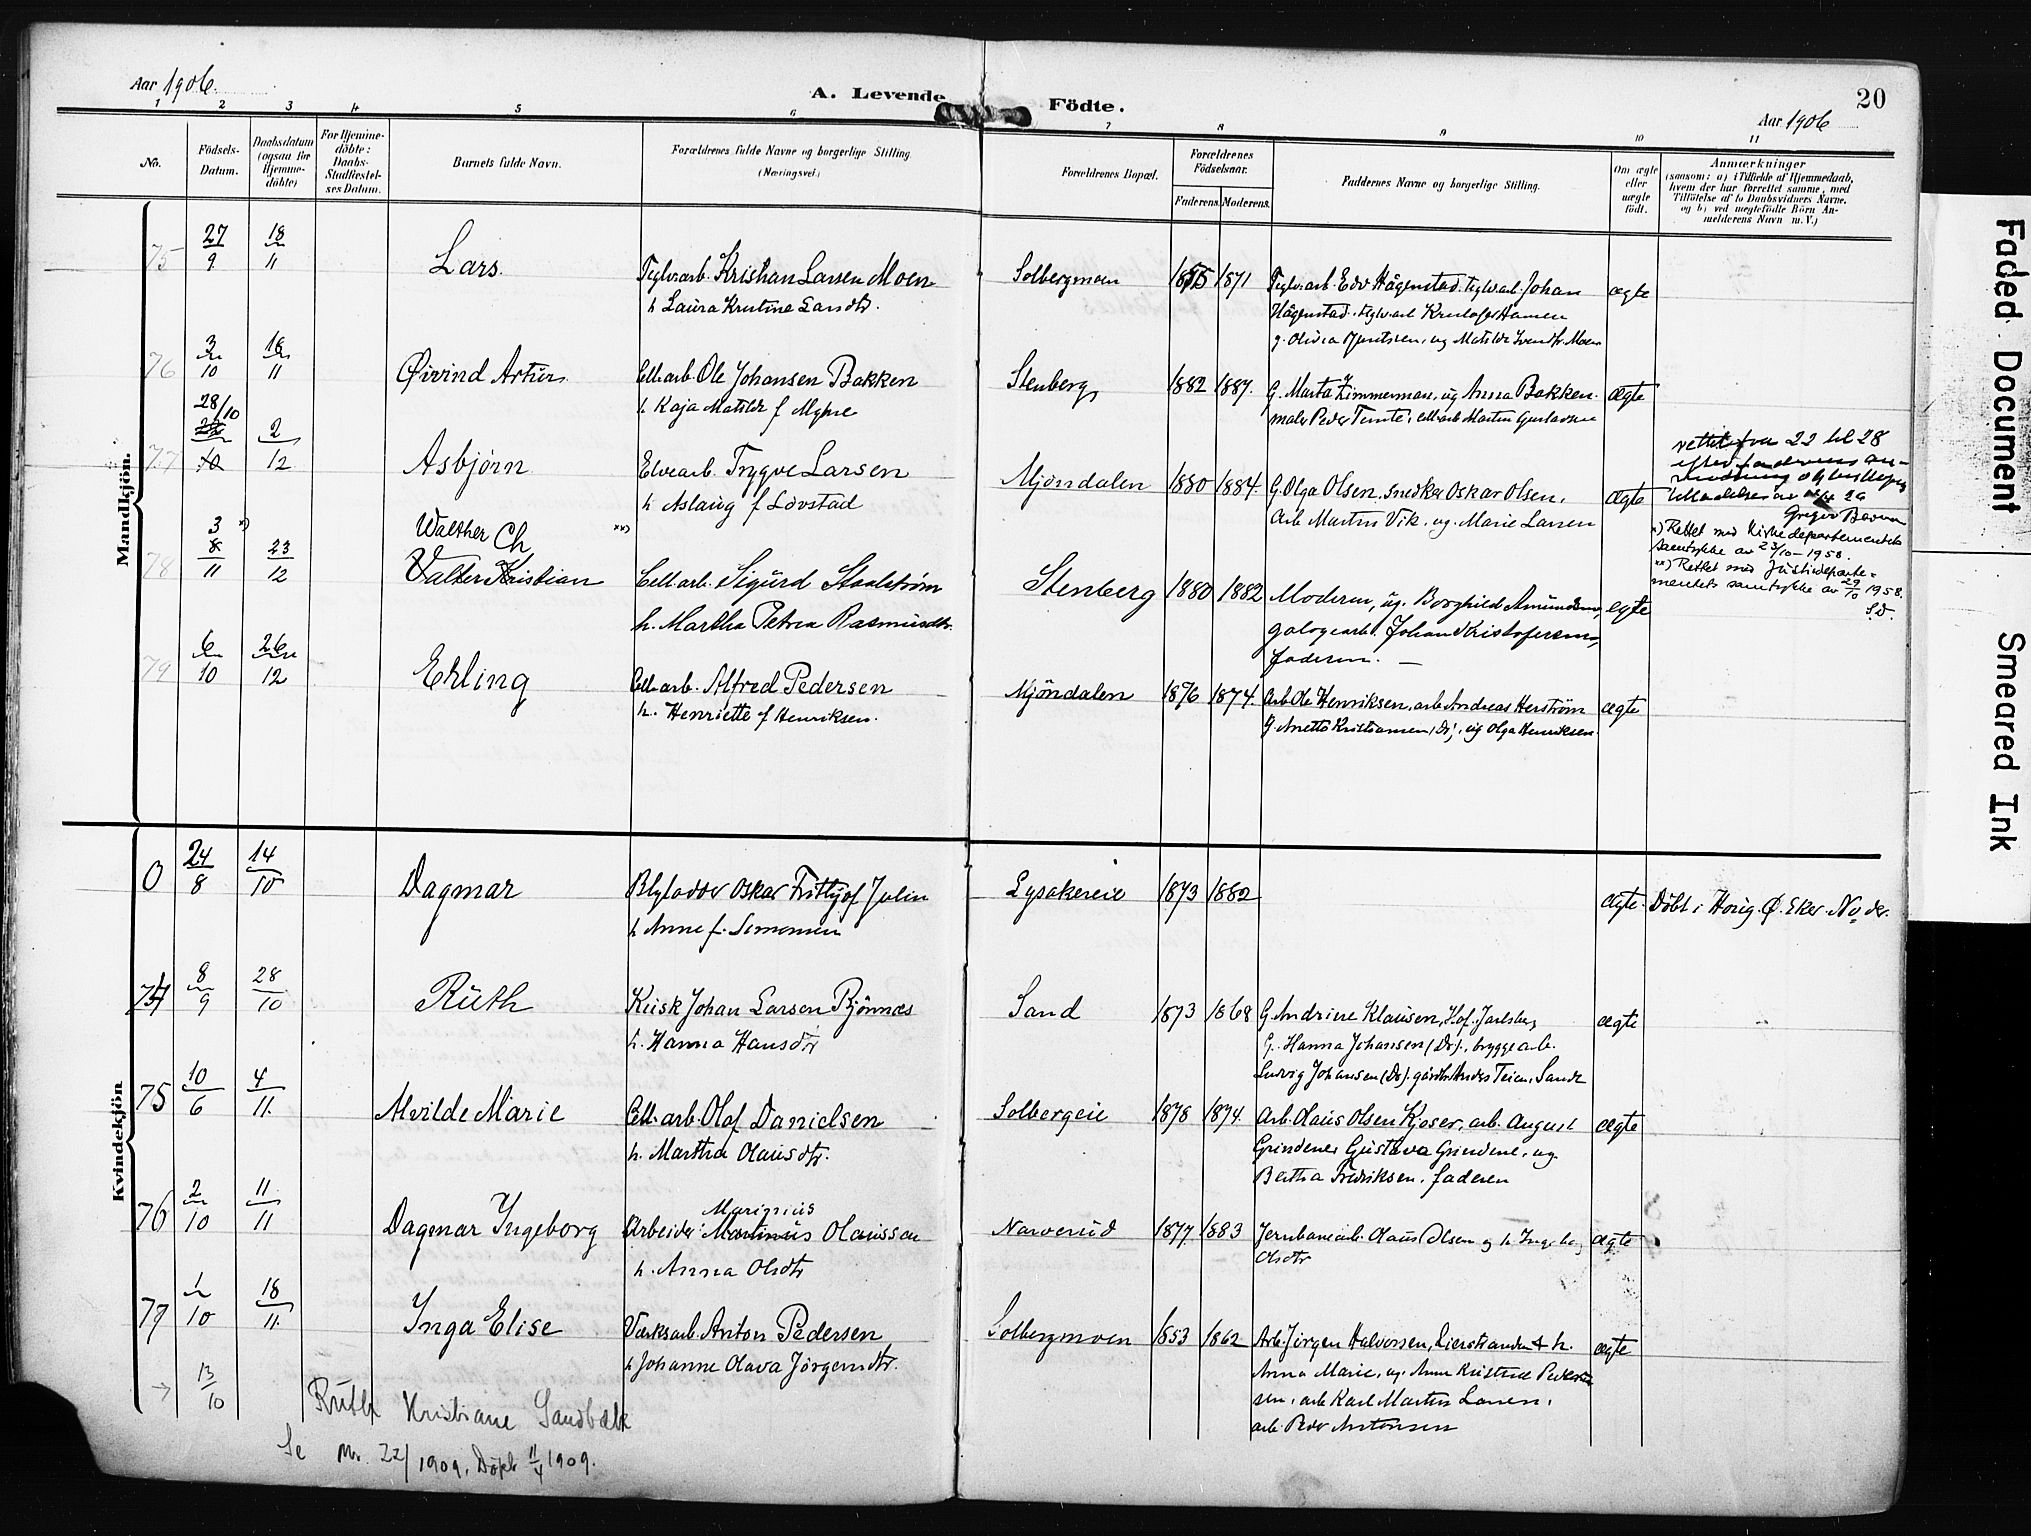 Aar 1906.
A. Levende Födte.
20
Aar 1906
1 2 3 4 5 6 7 8 9 10 11
No.
Födsels-
Datum.
Daabsdatum
(ogsaa for
Hjemme-
döbte)
For Hjemme-
döbte:
Daabs-
Stadfæstel-
ses Datum.
Barnets fulde Navn.
Forældrenes fulde Navne og borgerlige Stilling
(Næringsvei.)
Forældrenes Bopæl.
Forældrenes
Födselsaar.
Faderens. Moderens.
Faddernes Navne og borgerlige Stilling.
Om ægte
eller
uægte
födt.
Anmærkninger
(saasom: a) i Tilfælde af Hjemmedaab,
hvem der har forrettet samme, med
Tilföielse af to Daabsvidners Navne.
og b) ved uægtefödte Börn An-
melderens Navn m. V.)
Mandkjön.
75 27/9 18/11 Lars. Teglv.arb. Kristian Larsen Moen Solbergmoen 1871 Teglv.arb. Edv Hågenstad. teglv.arb. Johan ægte
h. Laura Kristine Larsdtr. Hågenstad. teglv.arb Kristofer Hansen
g. Olivia Bjerntsen, ug Matilde Svendsr. Moen
76 3/10 18/11 Øivind Artur. Cell.arb. Ole Johansen Bakken Stenberg 1882 1887. G. Marta Zimmerman, ug Anna Bakken. ægte
h. Kaja Matilde f. Myhre maler Peder Tomte, cell.arb Martin Gustavsen
28/10
77 2/12 Asbjørn Elvearb. Trygve Larsen Mjöndalen 1880 1884. G. Olga Olsen, snedker Oskar Olsen, ægte
h. Aslaug f. Lövstad Arb Martin Vik, ug. Marie Larsen
rettet fra 22 til 28
efter faderens an-
Walther Ch
78 3 8/11 23/12 Valter Kristian Cell.arb. Sigurd Staalström Stenberg 1880 1882 Moderen, ug. Borghild Amundsen, ægte
h. Martha Petrea Rasmusdtr. Johan Kristofersen,
faderen. —
x) Rettet med Kirkedepartementets
samtykke av 23/10-1958.
xx) Rettet med Justisdeparte-
mentets samtykke av 29/10 1958.
S.D.
79 6/10 26/12 Erling Cell.arb. Alfred Pedersen Mjöndalen 1876 1874. Arb Ole Henriksen, arb Andreas Herström ægte
h. Henriette f Henriksen. G. Anette Kristiansen, (Dr), ug Olga Henriksen.
Kvindekjön
0 24/8 14/10 Dagmar Oskar Fritjof Julin Lysakereie 1873 1882 ægte. Döbt i Haug. Ø. Eker. No der.
h Anne f. Simonsen
74 8/9 28/10 Ruth Kusk Johan Larsen Bjönnæs Sand 1873 1868 G. Andrine Klausen, Hof. Jarlsberg ægte
h. Hanna Hansdtr G. Hanna Johansen (Dr), bryggearb.
Ludvig Johansen (Dr). gårdbr. Anders Teien, Sande
75 10/6 4/11. Alvilde Marie Cell.arb. Olaf Danielsen Solbergeie 1878 1874. Arb. Olaus Olsen Kjoser, arb. August ægte
h. Martha Olausdtr. Grindene, Gustava Grindene, ug.
Bertha Fredriksen, faderen
Marinius
76 2/10 11/11 Dagmar Ingeborg Arbeider Martinus Olaussen Narverud 1877 1883 Jernbanearb. Olaus Olsen og h. Ingeborg ægte
h. Anna Olsdtr Olsdtr
77 1/10 18/11 Inga Elise Værksarb. Anton Pedersen Solbergmoen 1853 1862 Arb. Jörgen Halvorsen, Lierstranden & h. ægte
h Johanne Olava Jörgensdtr. Anna Marie, ug. Anne Kristine Peder-
sen, arb Karl Martin Larsen,
arb Peder Antonsen
→ 13/10 Ruth Kristiane Sandbæk
Se Nr. 22/1909. Döpt 11/4 1909.
Faded Document
Smeared Ink